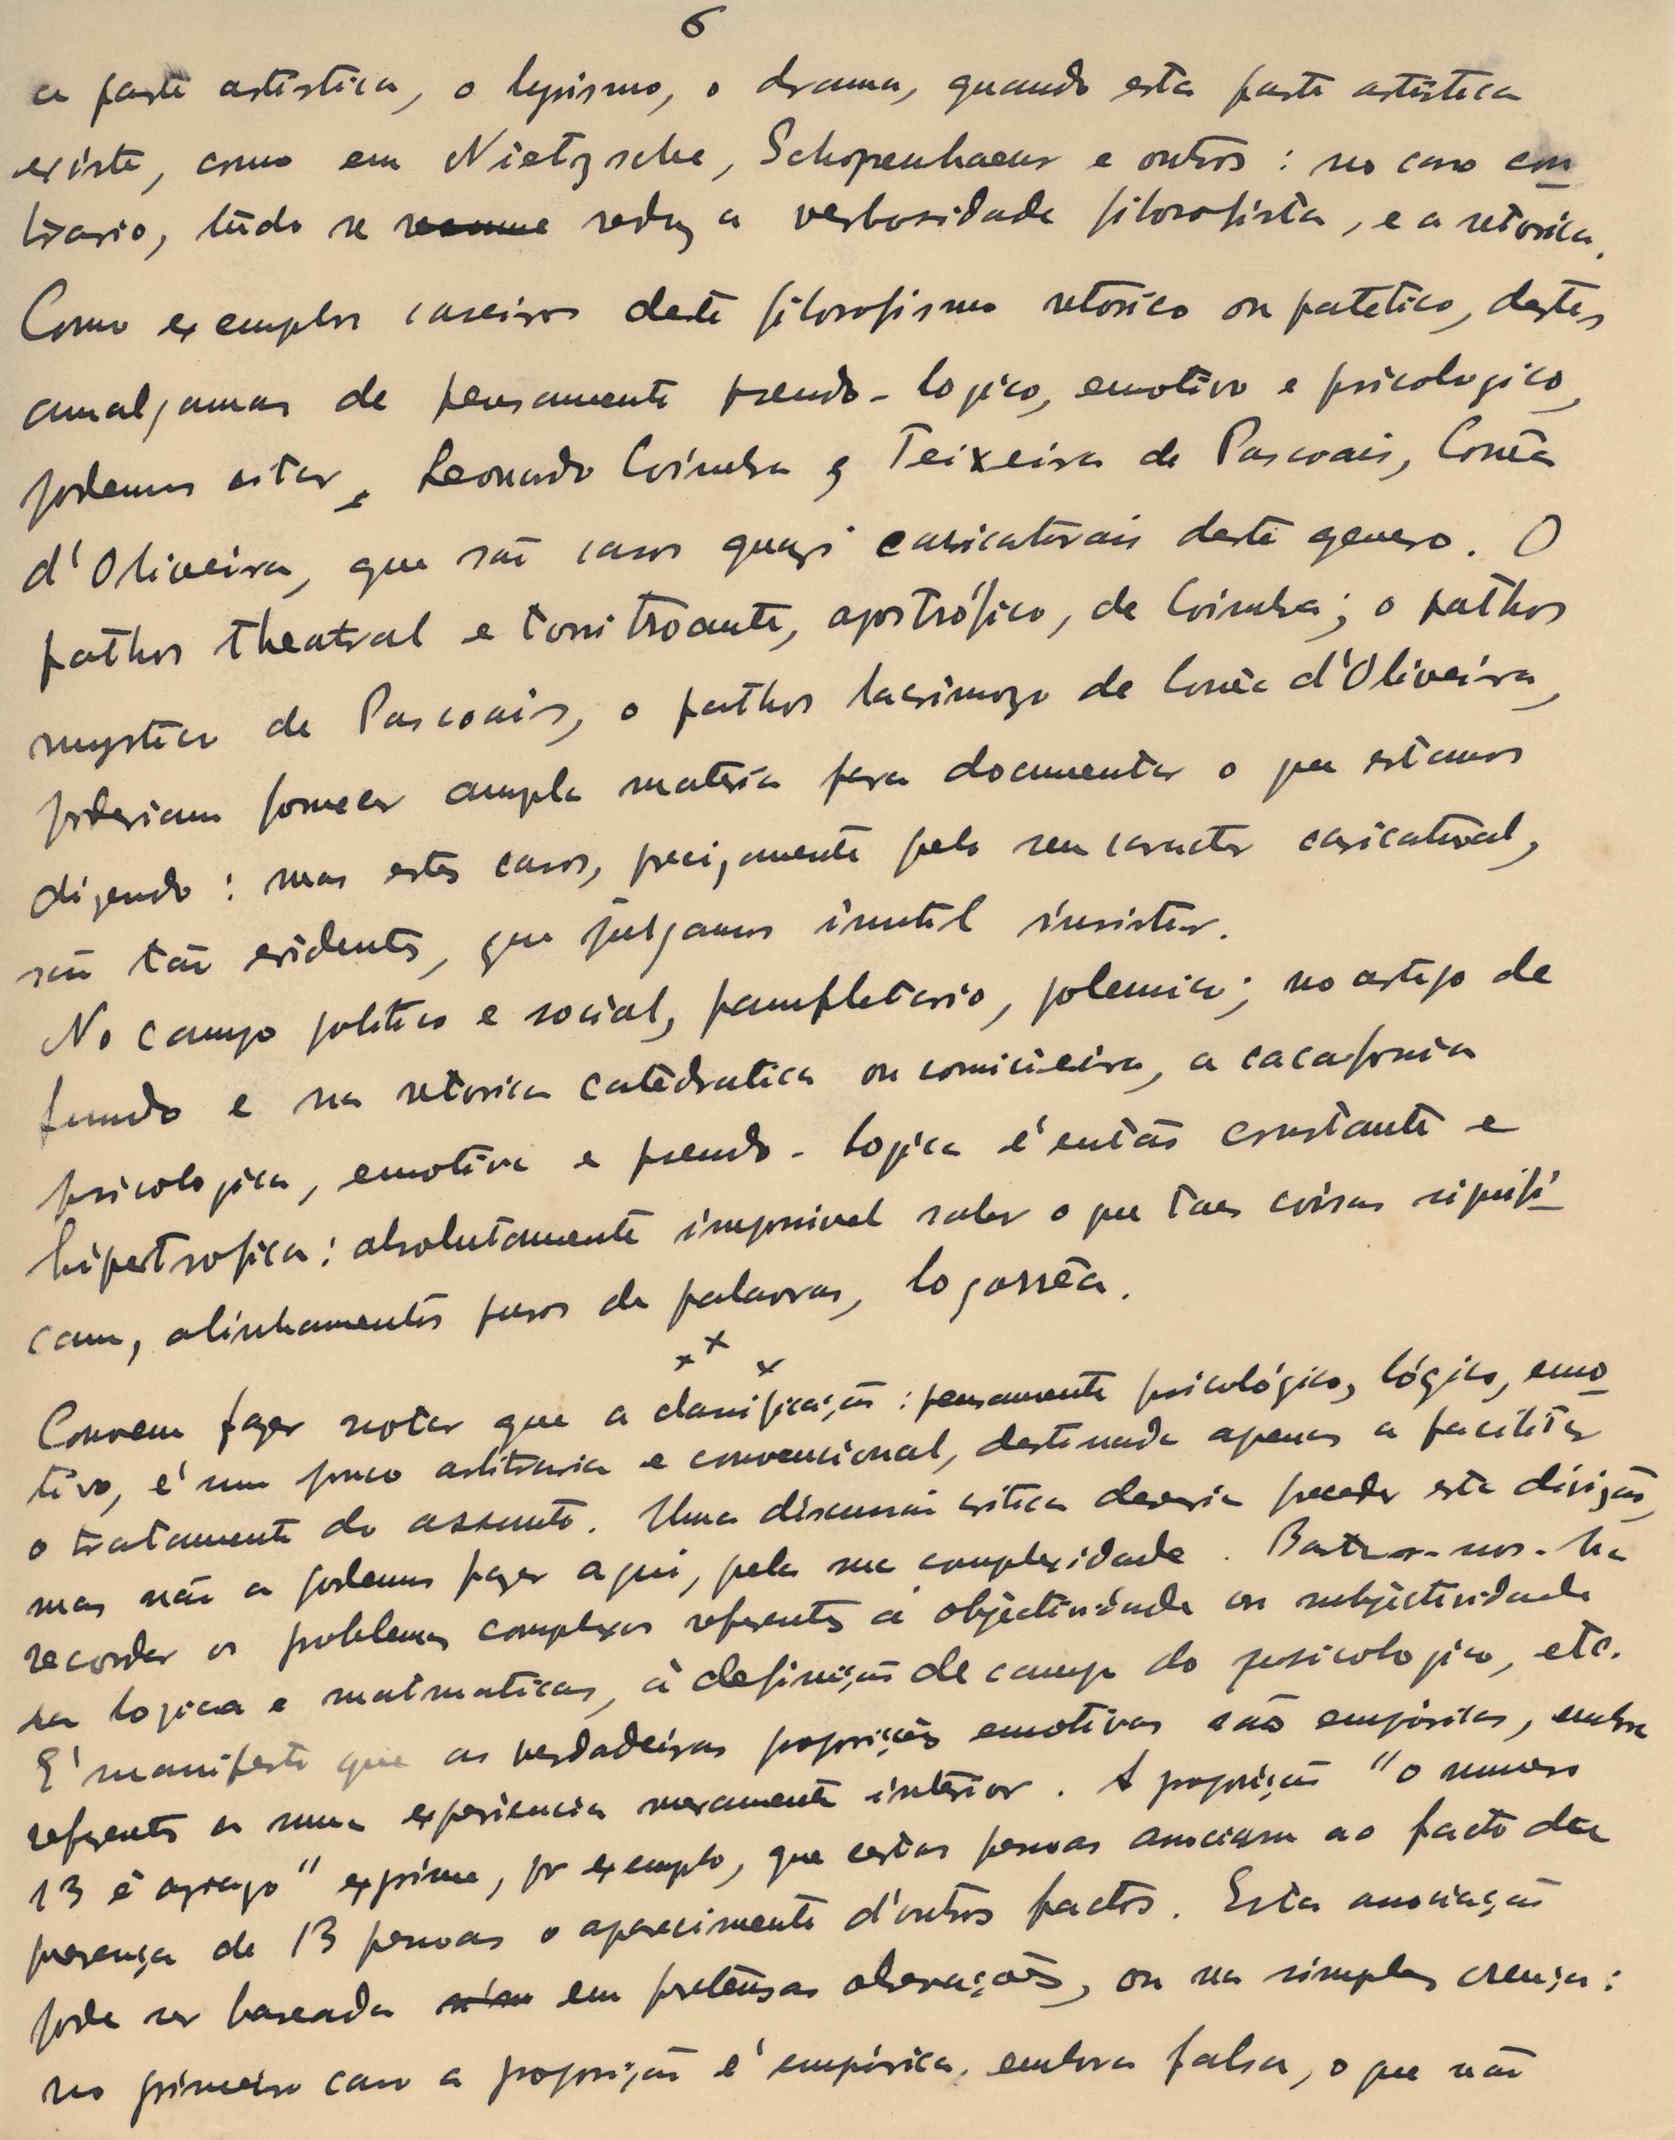 6
a parte artistica, o lyrismo, o drama, quando esta parte artistica
existe, como em Nietzsche, Schopenhaeur e outros : no caso con
trario, tudo se resume reduz a verbosidade filosofista, e a retorica.
Como exemplos caseiros deste filosofismo retorico ou patetico, destes
amalgamas de pensamento pseudo-logico, emotivo e psicologico,
podemos citar, Leonardo Coimbra e Teixeira de Pascoais, Corrêa
d'Oliveira, que são casos quazi caricaturais deste genero. O
pathos theatral e tonitroante, apostrófico, de Coimbra; o pathos
mystico de Pascoais, o pathos lacrimozo de Corrêa d'Oliveira,
poderiam fornecer ampla materia para documentar o que estamos
dizendo : mas estes casos, precizamente pelo seu caracter caricatural,
são tão evidentes, que julgamos inutil insistir.
No campo politico e social, pamfletario, polemico; no artigo de
fundo e na retorica catedratica ou comicieira, a cacafonia
psicologica, emotiva e pseudo-logica é então constante e
hipertrofica : absolutamente impossivel saber o que taes coisas signifi
cam, alinhamentos puros de palavras, logorrêa.
x x x
Convem fazer notar que a classificação : pensamento psicológico, lógico, emo
tivo, é um pouco arbitraria e convencional, destinada apenas a facilitar
o tratamento do assunto. Uma discussão critica deveria preceder esta divizão,
mas não a podemos fazer aqui, pela sua complexidade. Bastar-nos-ha
recordar os problemas complexos referentes á objectividade ou subjectividade
da logica e matmaticas, à definição de campo do psicologico, etc.
É manifesto que as verdadeiras proposições emotivas são empíricas, embora
referentes a uma experiencia meramente interior. A proposição "o numero
13 é aziago" exprime, por exemplo, que certas pessoas associam ao facto da
presença de 13 pessoas o aparecimento d'outros factos. Esta associação
pode ser baseada em pretensas observações, ou na simples crença :
no primeiro caso a proposição é empírica, embora falsa, o que não